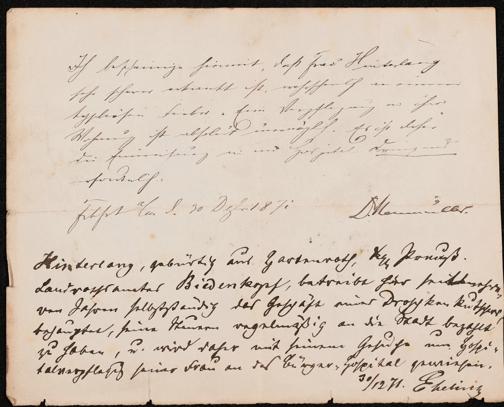 Ich bescheinige hiermit, daß Frau Hinterlang
sehr schwer erkrankt ist, wahrscheinlich an einem
typhösen Fieber. Eine Verpflegung in ihrer
Wohnung ist absolut unmöglich. Es ist daher
die Einweisung in ein Hospital dringend
erforderlich.
Frkfrt a/M d. 30 Dzbr 1871
Dr Neumüller.
Hinterlang, gebürtig aus Hartenrod, Kgl. Preuß.
Landrathsamtes Biedenkopf, betreibt hier seit mehre-
ren Jahren selbstständig das Geschäft eines Droschkenkutschers,
behauptet, seine Steuern regelmäßig an die Stadt bezahlt
zu haben, u. wird daher mit seinem Gesuche um Hospi-
talverpflegung seiner Frau an das Bürger-Hospital gewiesen.
30/12 71.